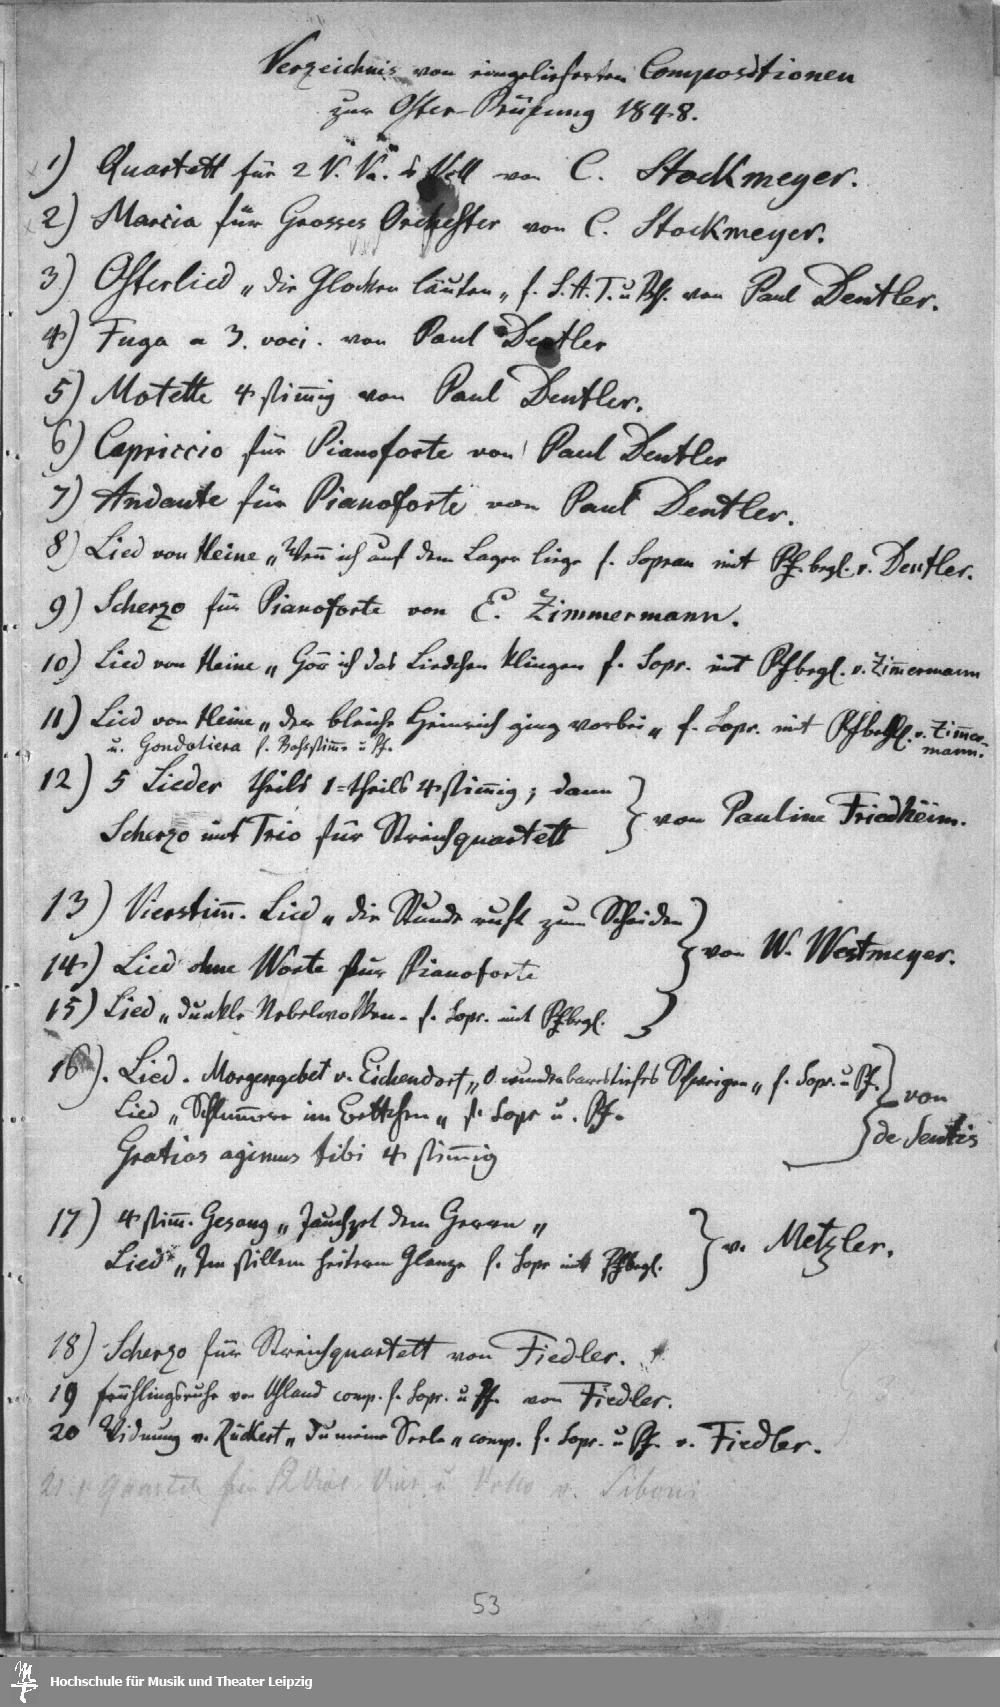 Verzeichnis von eingelieferten Compositionen
zur Oster-Prüfung 1848.
1) Quartett für 2 V. Va. & Vcll von C. Stockmeyer.
2) Marcia für Grosses Orchester von C. Stockmeyer.
3) Osterlied „die Glocken läuten„ f. S. A. T. u Bß. von Paul Dentler.
4) Fuga a 3. voci. von Paul Dentler
5) Motette 4 stim̄ig von Paul Dentler.
6) Capriccio für Pianoforte von Paul Dentler
7) Andante für Pianoforte von Paul Dentler.
8) Lied von Heine „Wen̄ ich auf dem Lager liege f. Sopran mit Pf. begl. v. Dentler.
9) Scherzo für Pianoforte von E. Zimmermann.
10) Lied von Heine „Hör ich das Liedchen klingen f. Sopr. mit Pfbegl. v. Zim̄ermann
11) Lied von Heine „der bleiche Heinrich ging vorbei„ f. Sopr. mit Pfbegl. v. Zim̄er-
mann.
u. Gondoliera f. Baßstim̄e u Pf.
12) 5 Lieder theils 1=theils 4 stim̄ig; dann
Scherzo mit Trio für Streichquartett
von Pauline Friedheim.
13) Vierstim̄. Lied „die Stunde ruft zum Scheiden
14) Lied ohne Worte für Pianoforte
von W. Westmeyer.
15) Lied „dunkle Nebelwolken„ f. Sopr. mit Pfbegl.
16). Lied. Morgengebet v. Eichendorf „O wunderbares tiefes Schweigen„ f. Sopr. u Pf.
Lied „Schlum̄ere im Bettchen„ f. Sopr u. Pf.
Gratias agimus tibi 4 stim̄ig
von
de Sentis
17) 4 stim̄. Gesang „Jauchzet dem Herrn„
Lied „Im stillem heiterm Glanze f. Sopr mit Pfbegl.
v. Metzler.
18) Scherzo für Streichquartett von Fiedler.
19 Frühlingsruhe von Uhland comp. f. Sopr. u Pf. von Fiedler.
20 Widmung v. Rückert „Du meine Seele„ comp. f. Sopr. u Pf. v. Fiedler.
21. Quartett für v. Siboni
53
Hochschule für Musik und Theater Leipzig